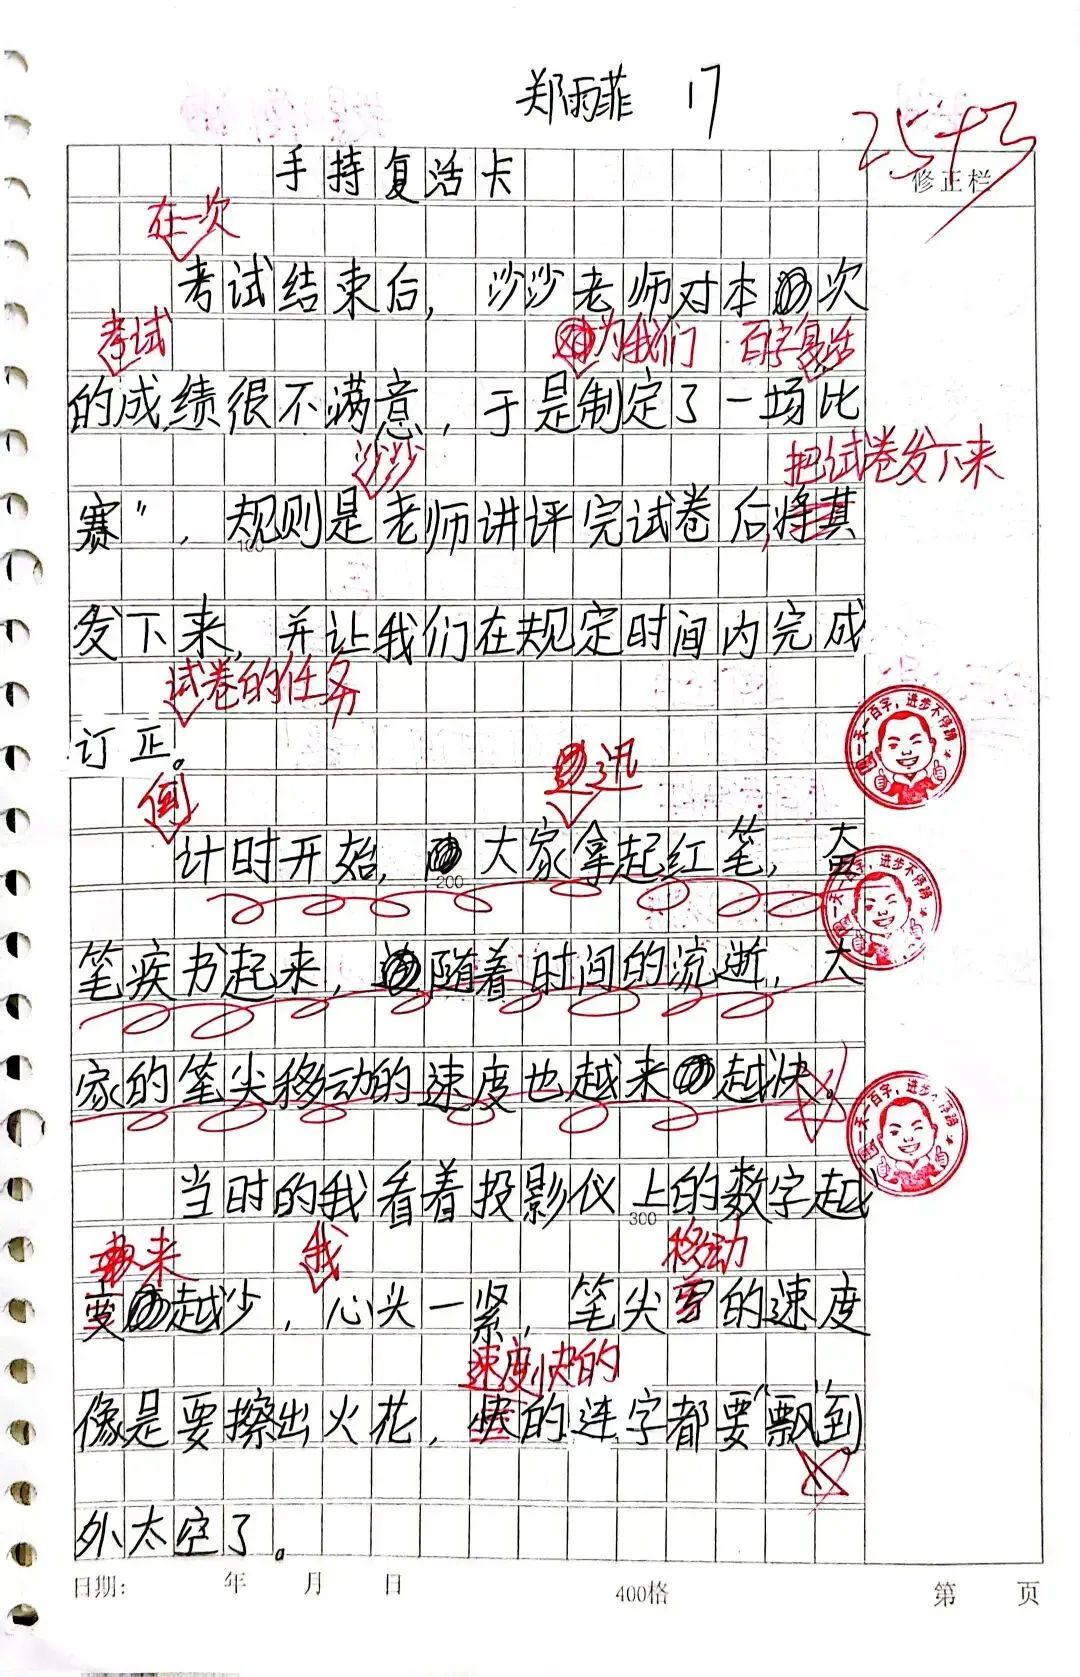 郑雨菲 17
25+3
手持复活卡
修正栏
在一次
考试结束后，沙沙老师对本次
考试 为我们 百字复活
的成绩很不满意，于是制定了一场比
沙沙 把试卷发下来
赛”，规则是老师讲评完试卷后，将其
100
发下来，并让我们在规定时间内完成
试卷的任务
订正。
一天一百字，进步不停蹄
倒 迅
计时开始，大家拿起红笔，奋
200
一天一百字，进步不停蹄
笔疾书起来，随着时间的流逝，大
家的笔尖移动的速度也越来越快。
一天一百字，进步不停蹄
当时的我看着投影仪上的数字越
300
来 我 移动
变越少，心头一紧，笔尖写的速度
速度快的
像是要擦出火花，快的连字都要“飘”到
外太空了。
日期： 年 月 日 400格 第 页